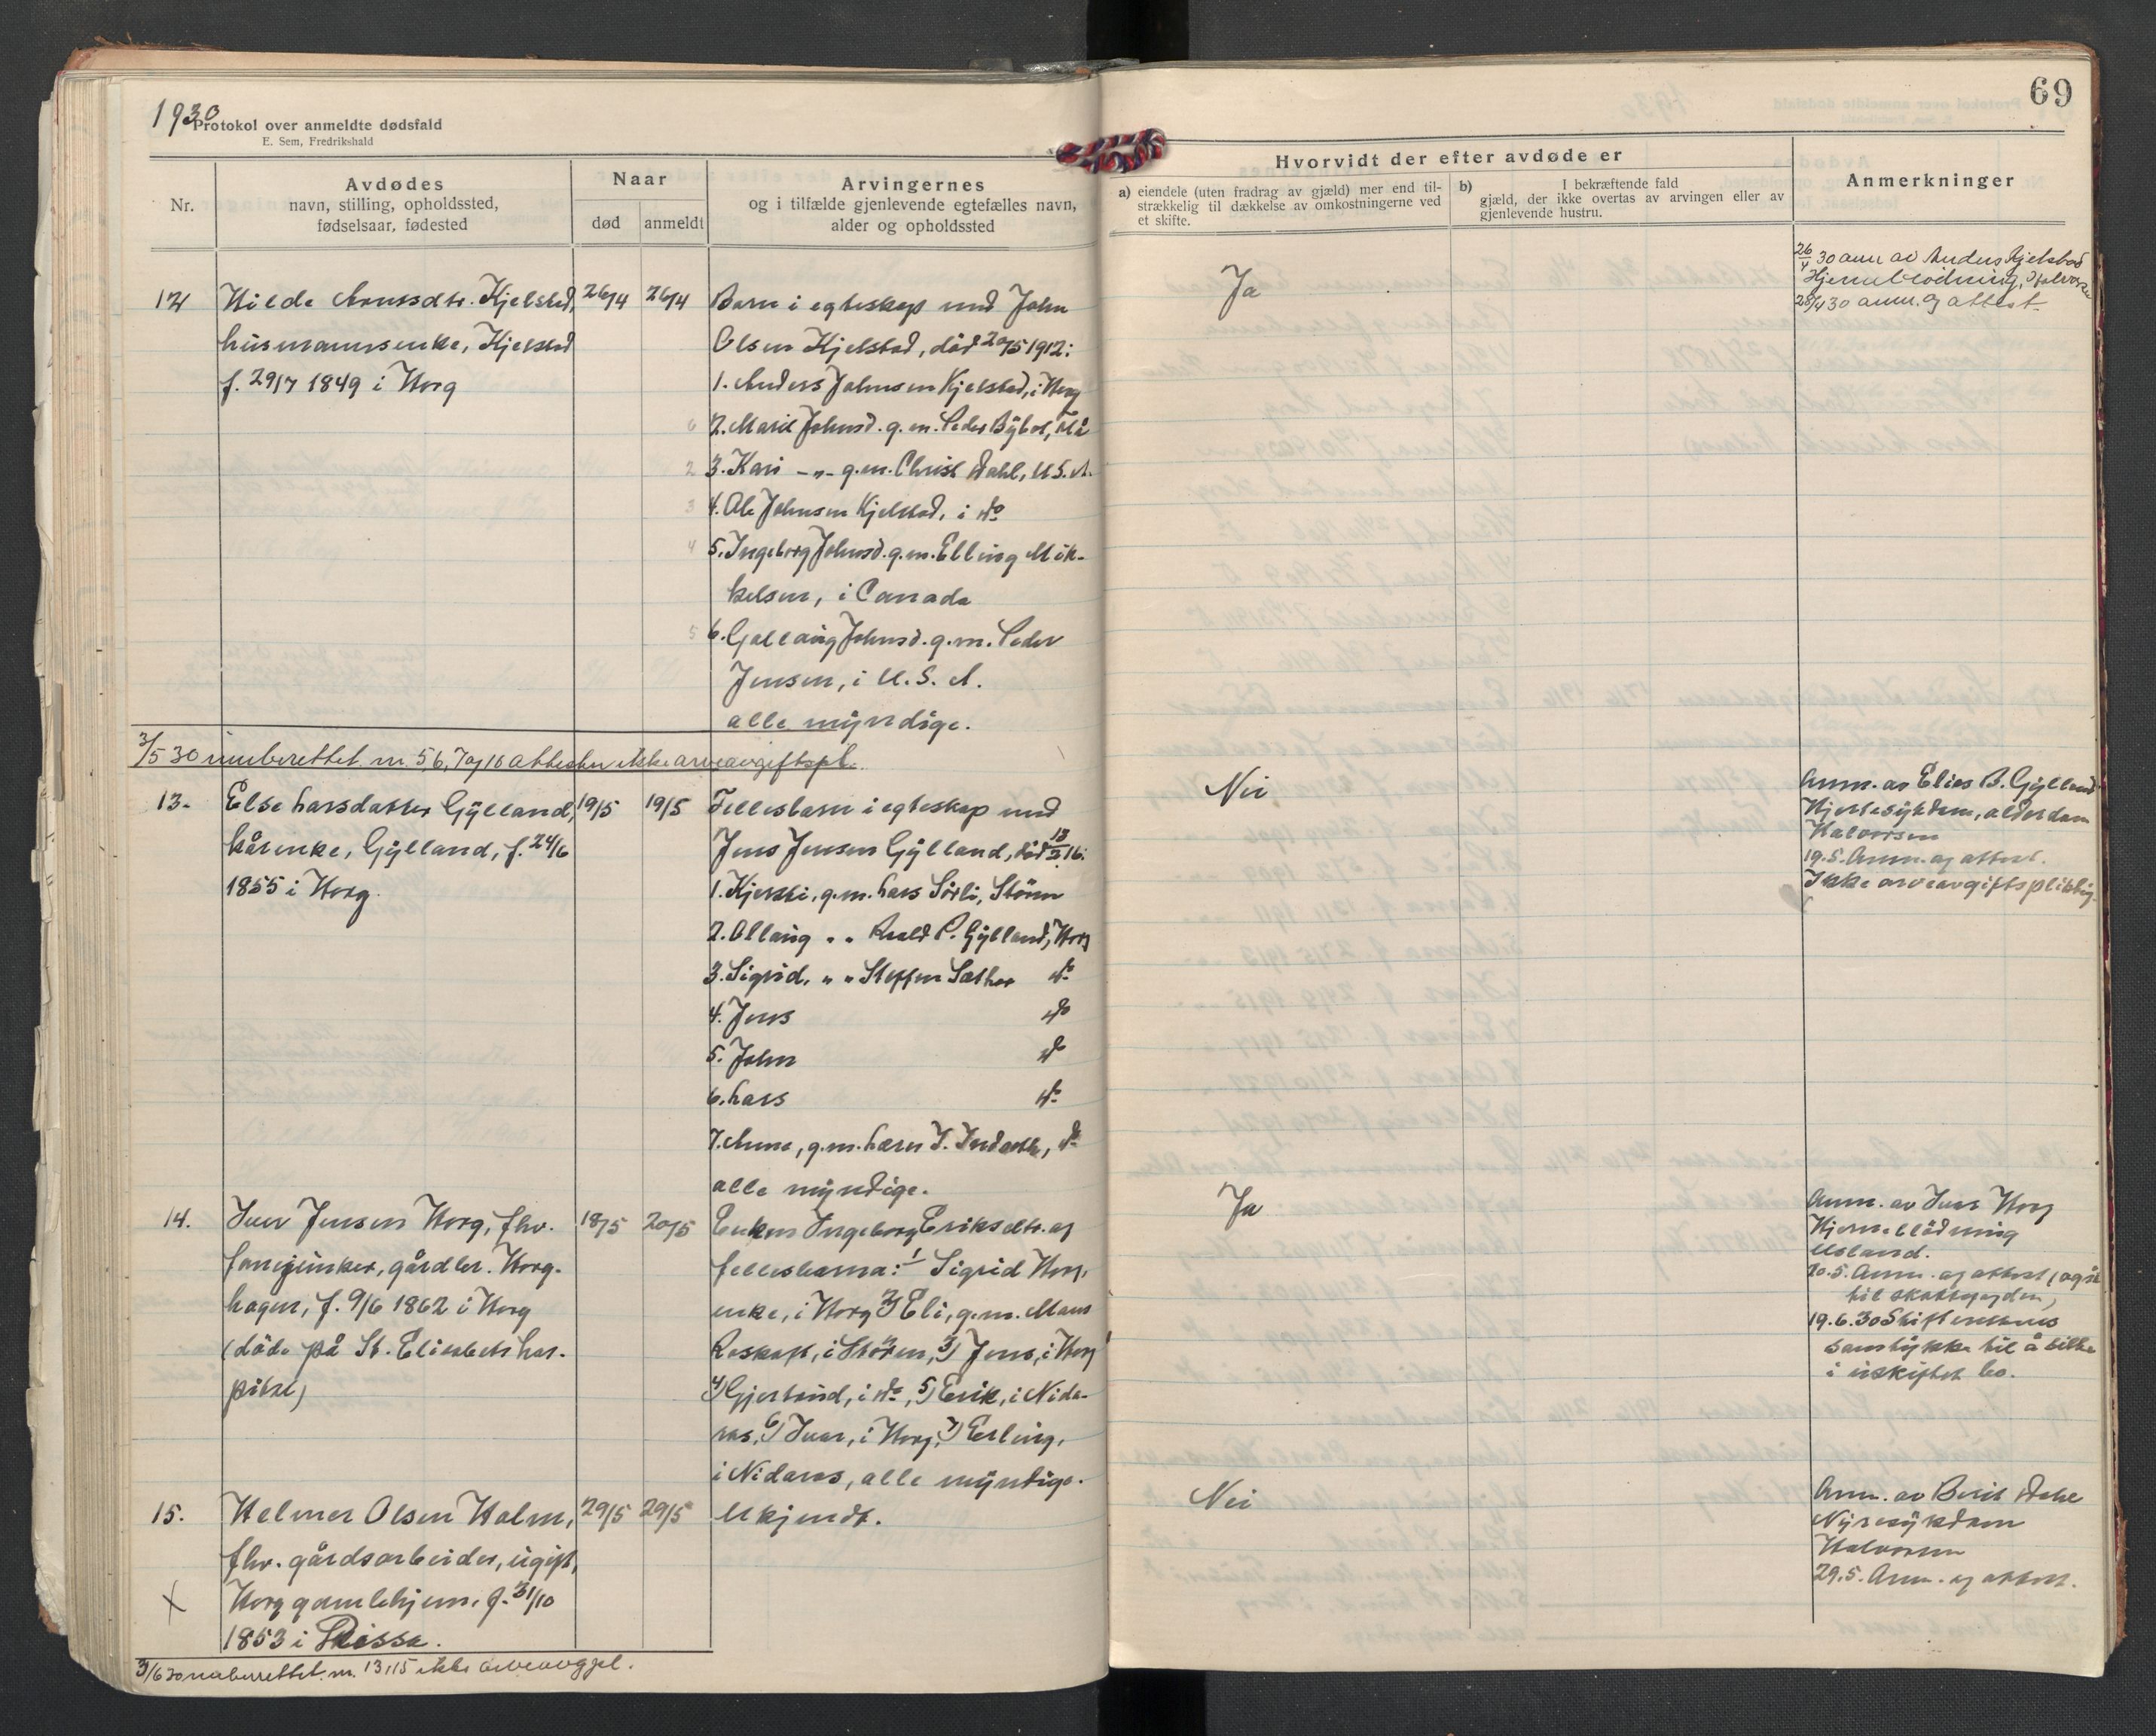 1930
Protokol over anmeldte dødsfald
E. Sem, Fredrikshald
69
Nr.
Avdødes
navn, stilling, opholdssted,
fødselsaar, fødested
Naar
død
anmeldt
Arvingernes
og i tilfælde gjenlevende egtefælles navn,
alder og opholdssted
Hvorvidt der efter avdøde er
a) eiendele (uten fradrag av gjæld) mer end til-
strækkelig til dækkelse av omkostningerne ved
et skifte.
b) I bekræftende fald
gjæld, der ikke overtas av arvingen eller av
gjenlevende hustru.
Anmerkninger
12
Hilde Arntsdtr. Kjelstad,
husmannsenke, Kjelstad
f. 29/7 1849 i Horg
26/4
26/4
Barn i egteskap med John
Olsen Kjelstad, død 20/5 1912:
1. Anders Johnsen Kjelstad, i Horg
2. Marit Johnsd. g.m. Peder Bybot, Flå
3. Kari -"- g.m. Christ Dahl, U.S.A.
4. Ole Johnsen Kjelstad, i do
5. Ingeborg Johnsd. g.m. Elling Mik-
kelsen, i Canada
6. Gollaug Johnsd. g.m. Peder
Jensen, i U.S.A.
alle myndige.
Ja
26/4 30 anm av Anders Kjelstad
Hjerneblødning, Halvorsen
28/4 30 anm. og attest
3/5 30 innberettet nr. 5, 6, 7 og 10 ikke arveavgiftspl.
13.
Else Larsdatter Gylland,
kårenke, Gylland, f. 24/6
1855 i Horg.
19/5
19/5
Fellesbarn i egteskap med
Jens Jensen Gylland, død 13/2 16:
1. Kjersti, g.m. Lars Sørli, Støren
2. Ollaug " " Roald P. Gylland, Horg
3. Sigrid, " " Steffen Sæther do
4. Jens do
5. John do
6. Lars do
7. Anne, g.m. J. do
alle myndige.
Nei
Anm. av Elias B. Gylland
Hjertesykdom, alderdom
Halvorsen
19.5. Anm. og attest.
Ikke arveavgiftspliktig
14.
Iver Jensen Horg, fhv.
fanejunker, gårdbr. Horg-
hagen, f. 9/6 1862 i Horg
(døde på St. Elisabets hos-
pital)
18/5
20/5
Enken Ingeborg Eriksdtr. og
fellesbarna: 1) Sigrid Horg,
enke, i Horg 2) Eli, g.m. Mans
Roskaft, i Støren, 3) Jens, i Horg
4) Gjertrud, i do, 5) Erik, i Nida-
ros, 6) Ivar, i Horg, 7) Erling,
i Nidaros, alle myndige.
Ja
Anm. av Ivar Horg
Hjerneblödning
Usland.
20.5. Anm. og attest (også
til skattefogden)
19.6.30 Skifterettens
samtykke til å sitte
i uskiftet bo.
15.
Helmer Olsen Holm,
fhv. gårdsarbeider, ugift,
Horg gamlehjem, f. 31/10
1853 i Rissa.
29/5
29/5
Ukjendt.
Nei
Anm. av Berit Dahl
Nyresykdom
Halvorsen
29.5. Anm. og attest.
X
3/6 30 innberettet nr. 13, 15 ikke arveavgpl.